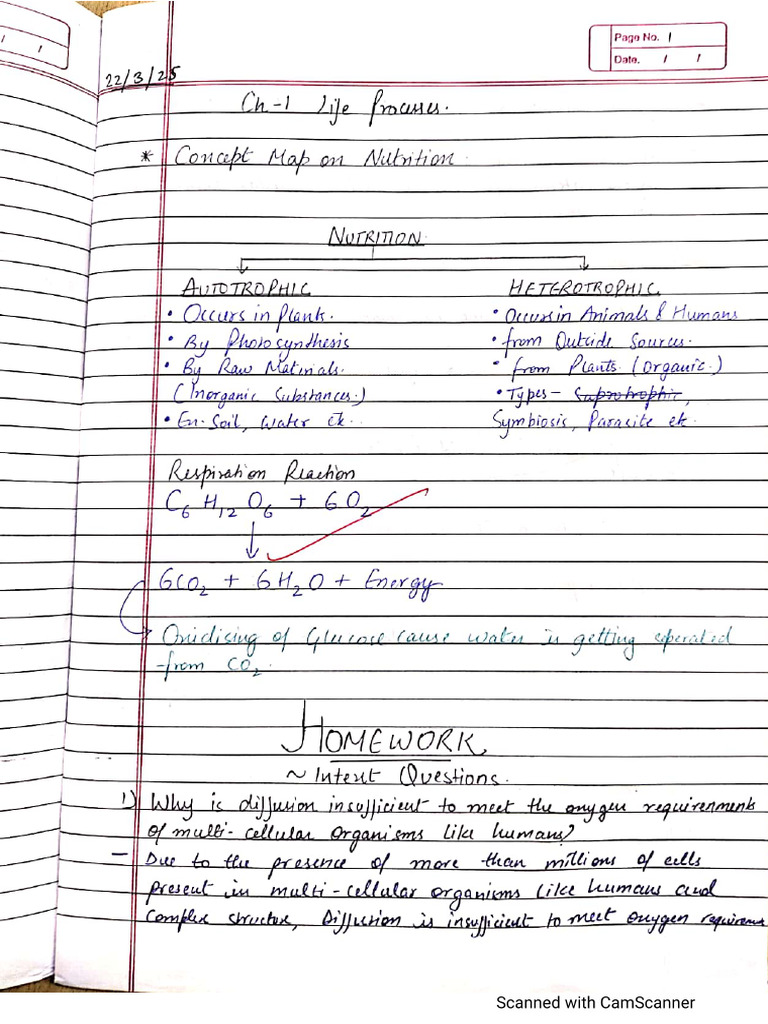 Page No. 1
Date. / /
/ /
22/3/25
Ch-1 Life Processes.
* Concept Map on Nutrition
NUTRITION
AUTOTROPHIC
• Occurs in plants.
• By Photosynthesis
• By Raw Materials.
(Inorganic Substances.)
• Ex. Soil, Water etc..
HETEROTROPHIC
• Occurs in Animals & Humans
• from Outside Sources.
• from Plants. (Organic.)
• Types – Saprotrophic,
Symbiosis, Parasite etc.
Respiration Reaction
C6 H12 O6 + 6O2
↓
6CO2 + 6H2O + Energy
Oxidising of Glucose cause water is getting seperated
from CO2.
HOMEWORK
~ Intext Questions.
1) Why is diffusion insufficient to meet the oxygen requirements
of multi-cellular organisms like humans?
– Due to the presence of more than millions of cells
present in multi-cellular organisms like humans and
complex structure, Diffusion is insufficient to meet oxygen
Scanned with CamScanner